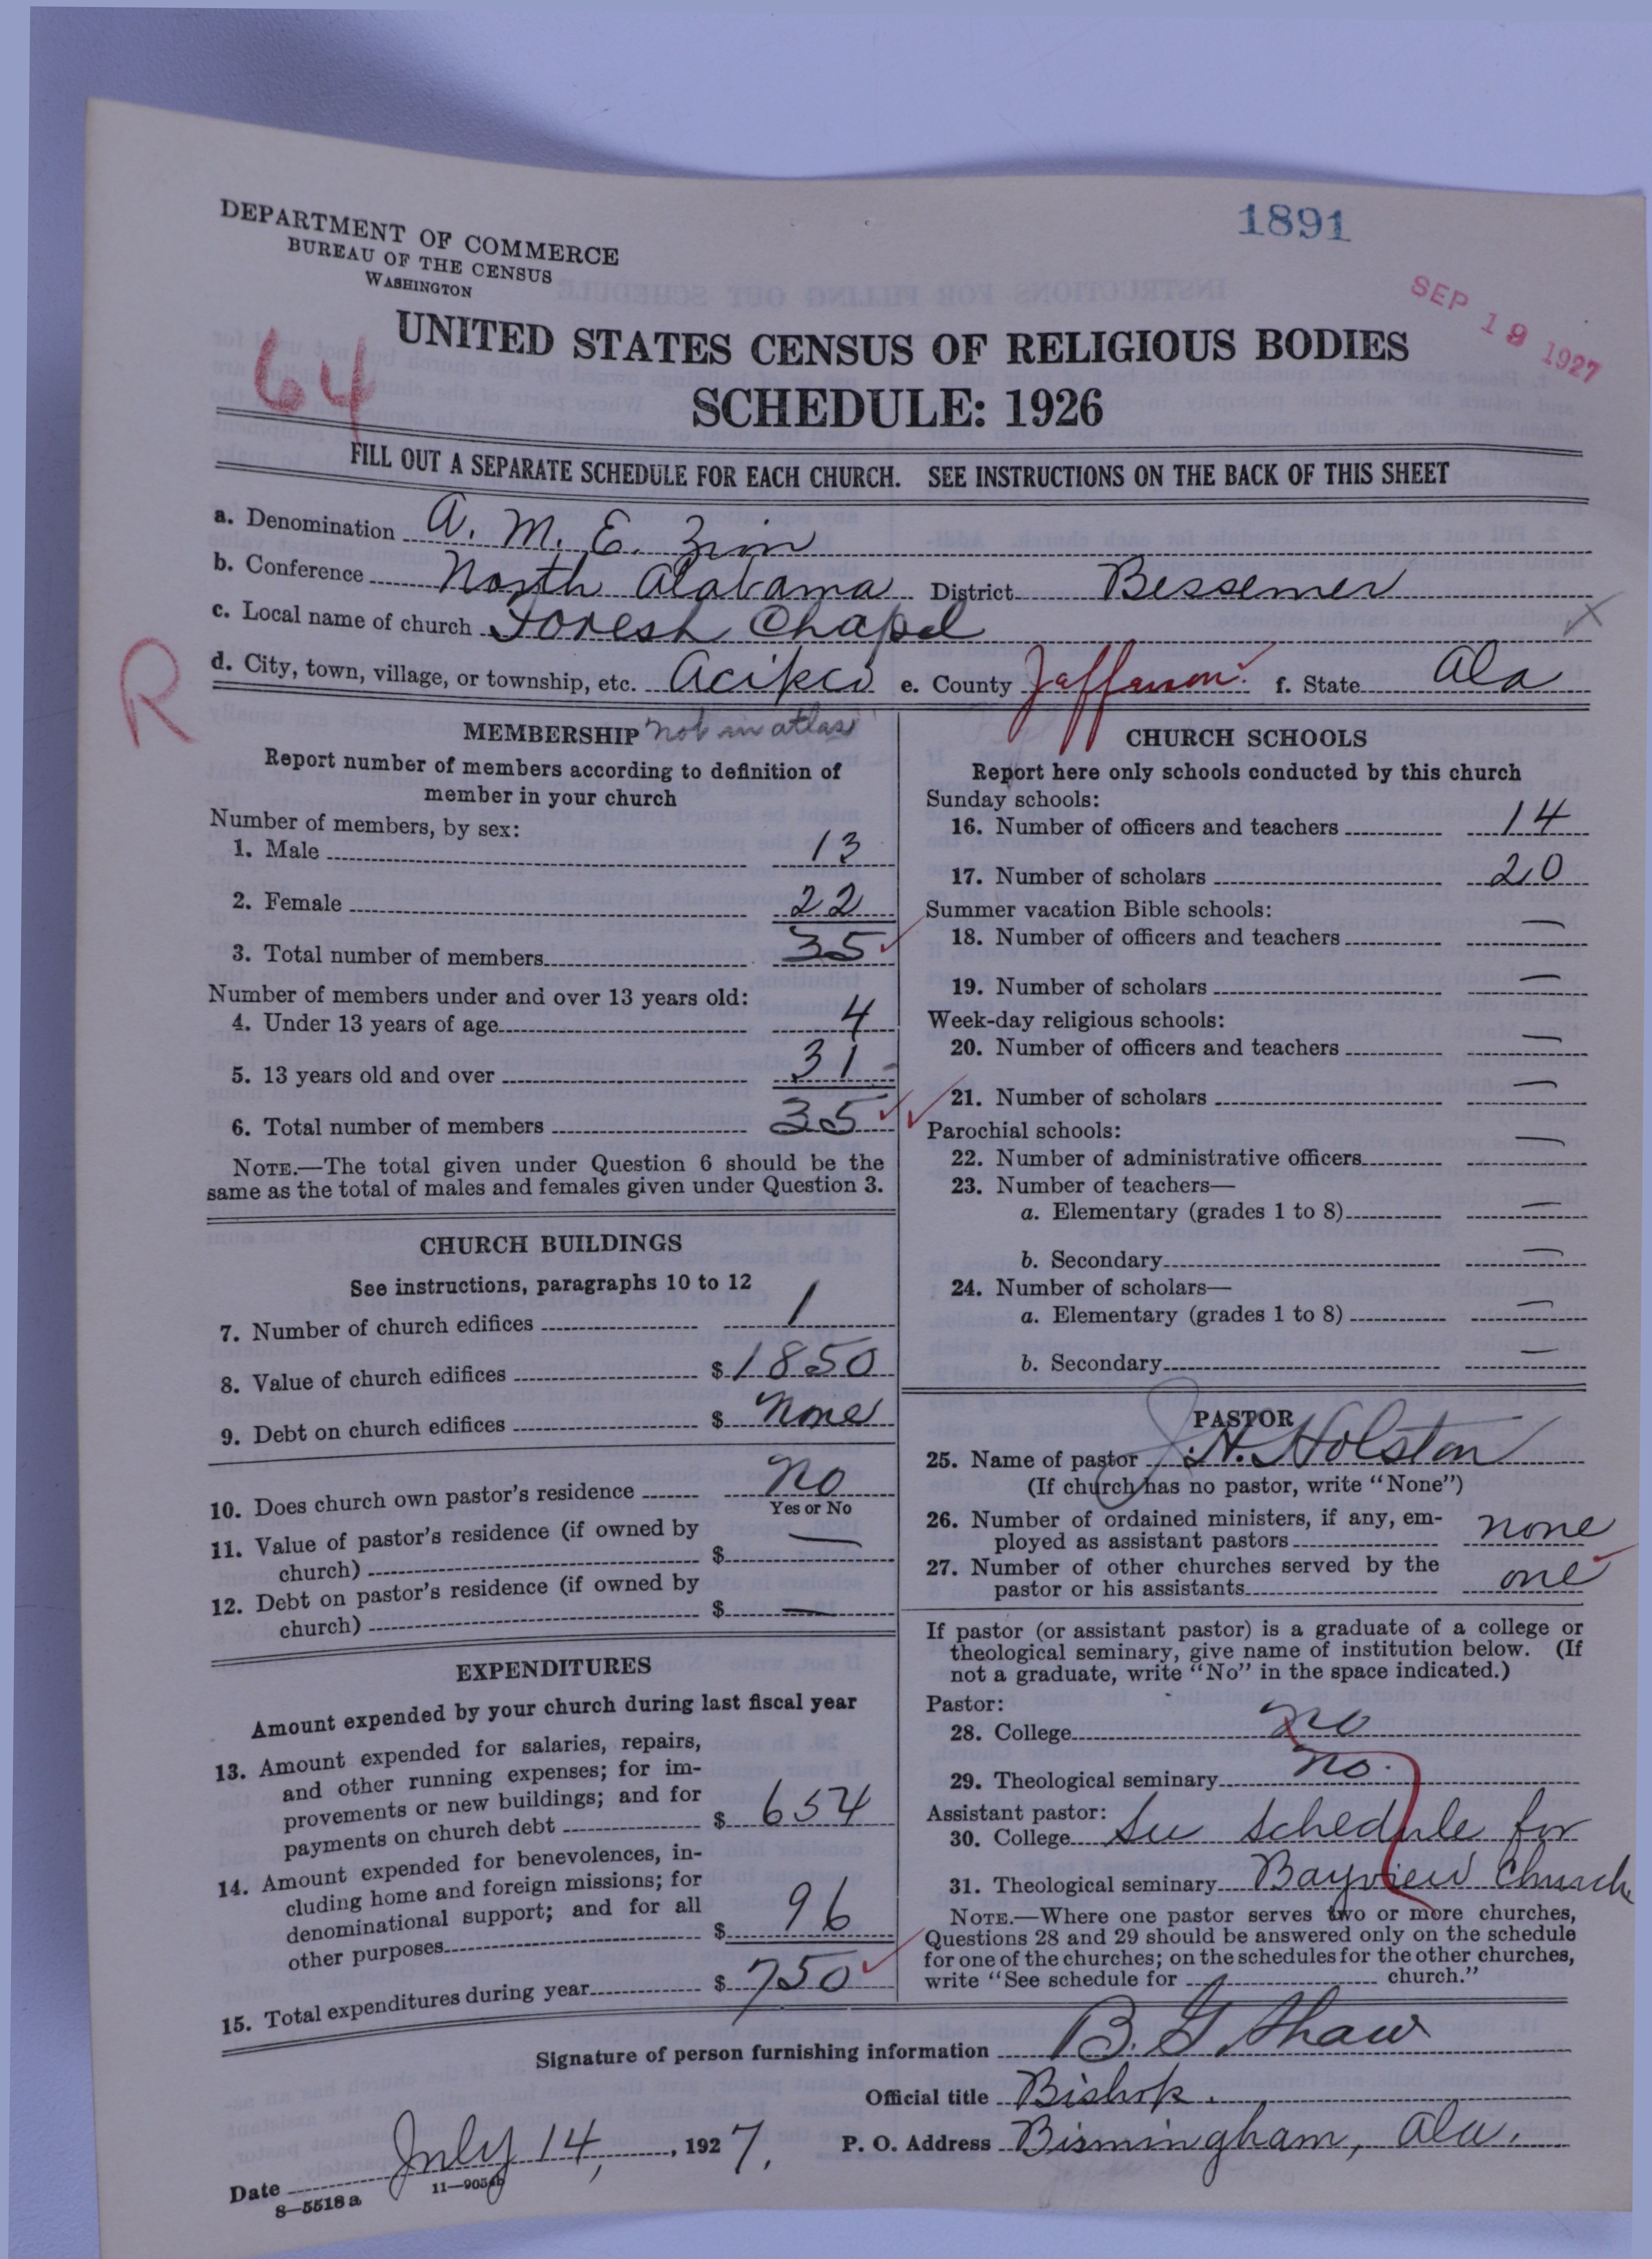 1891
DEPARTMENT OF COMMERCE
BUREAU OF THE CENSUS
WASHINGTON
SEP 19 1927
64
UNITED STATES CENSUS OF RELIGIOUS BODIES
SCHEDULE: 1926
FILL OUT A SEPARATE SCHEDULE FOR EACH CHURCH. SEE INSTRUCTIONS ON THE BACK OF THIS SHEET
a. Denomination A. M. E. Zion
b. Conference North Alabama District Bessemer
c. Local name of church Foresh Chapel
R
d. City, town, village, or township, etc. Acipco e. County Jefferson f. State Ala
MEMBERSHIP not in atlas
Report number of members according to definition of
member in your church
Number of members, by sex:
1. Male 13
2. Female 22
3. Total number of members 35
Number of members under and over 13 years old:
4. Under 13 years of age 4
5. 13 years old and over 31
6. Total number of members 35
NOTE.—The total given under Question 6 should be the
same as the total of males and females given under Question 3.
CHURCH BUILDINGS
See instructions, paragraphs 10 to 12
7. Number of church edifices 1
8. Value of church edifices $ 1850
9. Debt on church edifices $ None
10. Does church own pastor's residence No
Yes or No
11. Value of pastor's residence (if owned by
church) $ —
12. Debt on pastor's residence (if owned by
church) $ —
EXPENDITURES
Amount expended by your church during last fiscal year
13. Amount expended for salaries, repairs,
and other running expenses; for im-
provements or new buildings; and for
payments on church debt $ 654
14. Amount expended for benevolences, in-
cluding home and foreign missions; for
denominational support; and for all
other purposes $ 96
15. Total expenditures during year $ 750
CHURCH SCHOOLS
Report here only schools conducted by this church
Sunday schools:
16. Number of officers and teachers 14
17. Number of scholars 20
Summer vacation Bible schools:
18. Number of officers and teachers —
19. Number of scholars —
Week-day religious schools:
20. Number of officers and teachers —
21. Number of scholars —
Parochial schools:
22. Number of administrative officers —
23. Number of teachers—
a. Elementary (grades 1 to 8) —
b. Secondary —
24. Number of scholars—
a. Elementary (grades 1 to 8) —
b. Secondary —
PASTOR
25. Name of pastor J. H. Holston
(If church has no pastor, write "None")
26. Number of ordained ministers, if any, em-
ployed as assistant pastors none
27. Number of other churches served by the
pastor or his assistants one
If pastor (or assistant pastor) is a graduate of a college or
theological seminary, give name of institution below. (If
not a graduate, write "No" in the space indicated.)
Pastor:
28. College no
29. Theological seminary no.
Assistant pastor:
30. College See schedule for
31. Theological seminary Bayview Church
NOTE.—Where one pastor serves two or more churches,
Questions 28 and 29 should be answered only on the schedule
for one of the churches; on the schedules for the other churches,
write "See schedule for church."
Signature of person furnishing information B. G. Shaw
Official title Bishop.
Date July 14, 1927. P. O. Address Birmingham, Ala.
8—5518 a 11—9054b